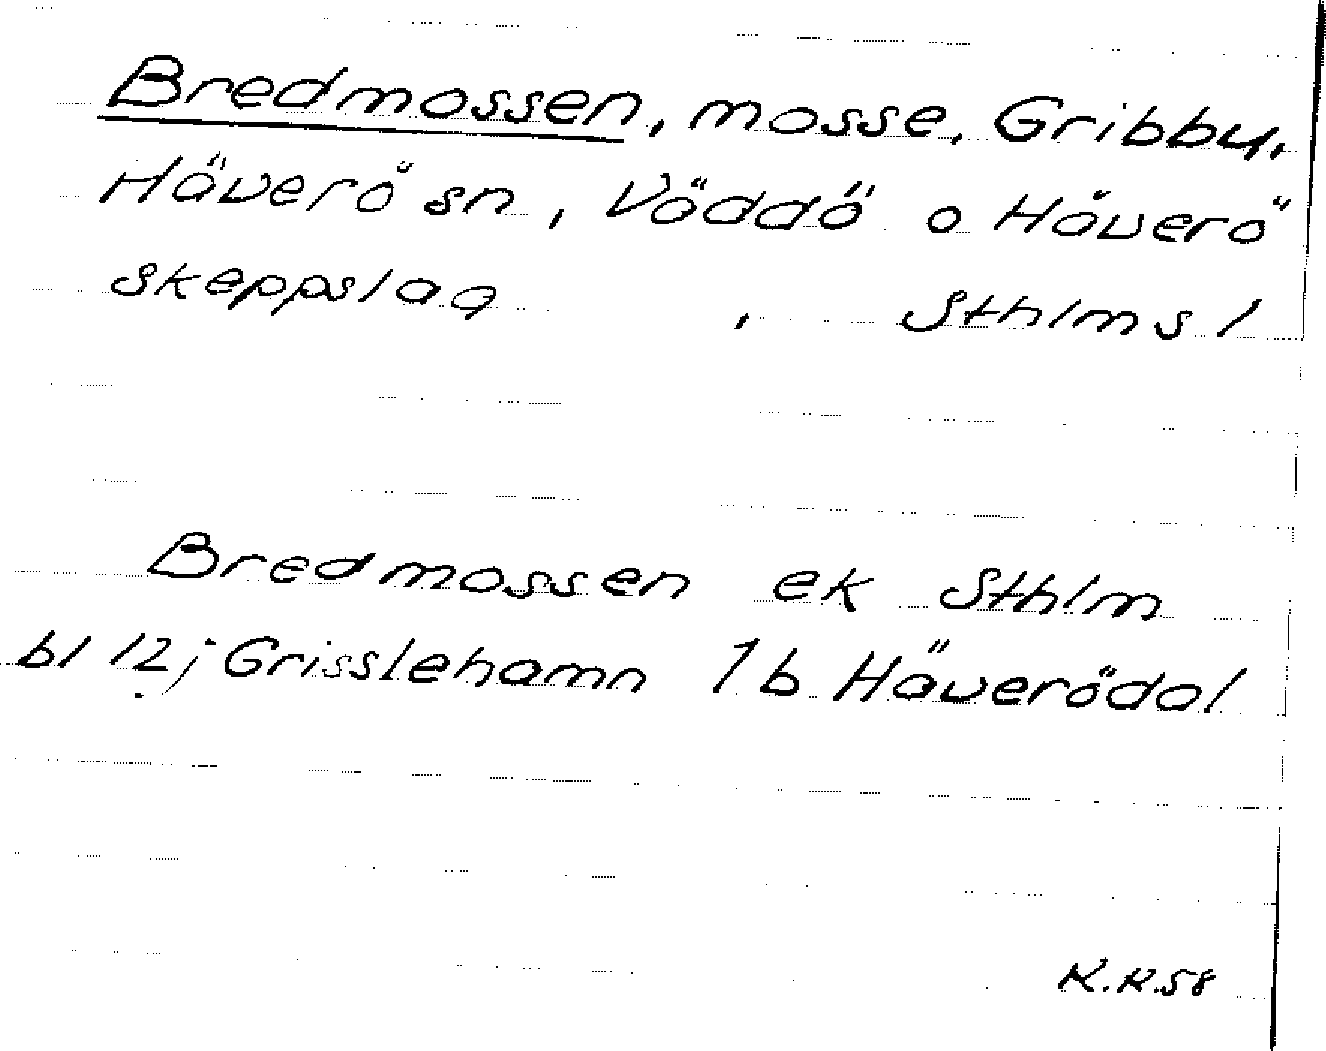 Bredmossen, mosse, Gribby,
Häverö sn, Väddö o Häverö
skeppslag, Sthlms l
Bredmossen ek Sthlm
bl 12j Grisslehamn 1b Häverödal
K.K.58